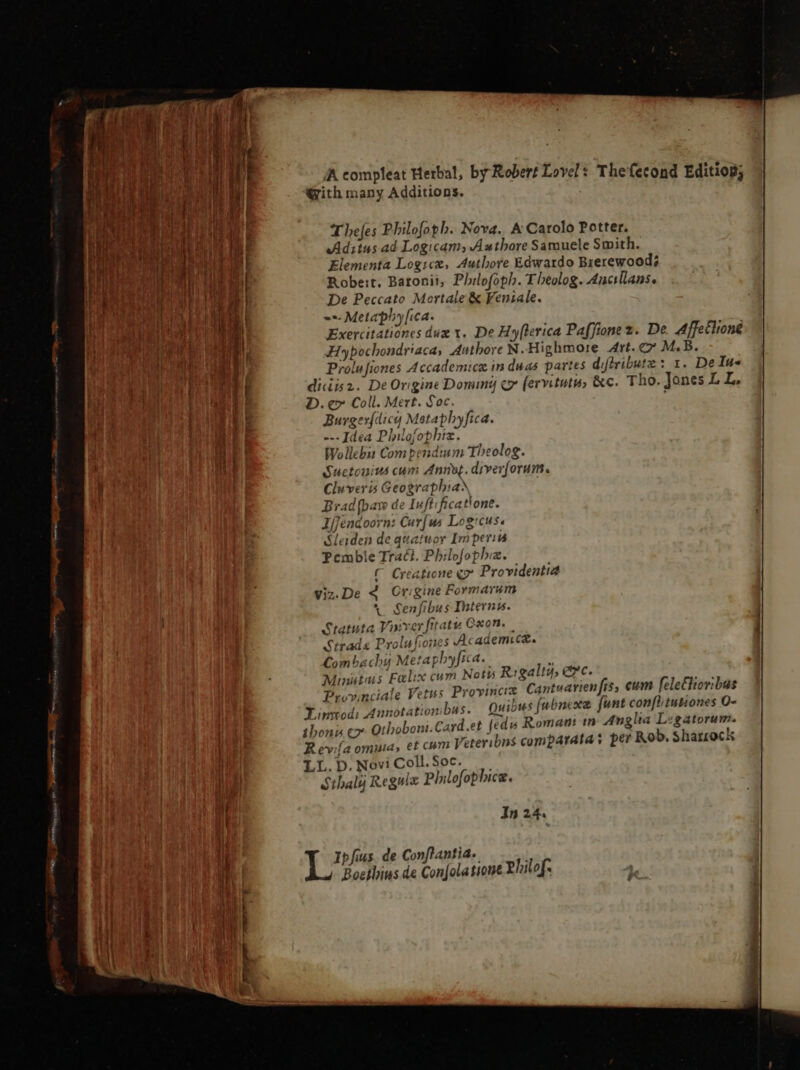 A compleat Herbal, by Robert Lovel: The ſecond Edition;
with many Additions.
Theſes Philoſoph. Nova. A Carolo Potter.
Aditus ad Logicam, Authore Samuele Smith.
Elementa Logicæ, Authore Edwardo Brerewood;
Robert. Baronii, Philoſoph. Theolog. Ancillans.
De Peccato Mortale & Veniale.
--- Metaphyſica.
Exercitationes duæ 1. De Hyſterica Paſſione 2. De Affectione
Hypochondriaca, Authore N. Highmore Art. & M. B.
Proluſiones Accademicæ in duas partes diſtributæ: 1. De Iu-
diciis 2. De Origine Dominij & ſervitutis, &c. Tho. Jones L L.
D. & Coll. Mert. Soc.
Burgerſdicij Metaphyſica.
--- Idea Philoſophiæ.
Wollebii Compendium Theolog.
Suetonius cum Annot. diverſorum.
Cluveris Geographia
Bradſhaw de Iuſtificatione.
Iſſendoorni Curſus Logicus.
Sleiden de quatuor Imperiis
Pemble Tract. Philoſophiæ.
{ Creatione & Providentia
Viz. De { Origine Formarum
{ Senſibus Internis.
Statuta Vniverſitatis Oxon.
Strada Proluſiones Academicæ.
Combachij Metaphyſica.
Minutius Fælix cum Notis Rigaltij, &c.
Provinciale Vetus Provinciæ Cantuarienſis, cum ſelectioribus
Linwodi Annotationibus. Quibus ſubnexæ ſunt conſtitutiones O-
thonis & Othoboni. Card. et ſedis Romani in Anglia Legatorum.
Reviſa omnia, et cum Veteribns comparata: per Rob. Sharrock
LL. D. Novi Coll. Soc.
Sthalij Regulæ Philoſophicæ.
In 24.
LIpſius de Conſtantia.
Boethius de Conſolatione Philoſ.